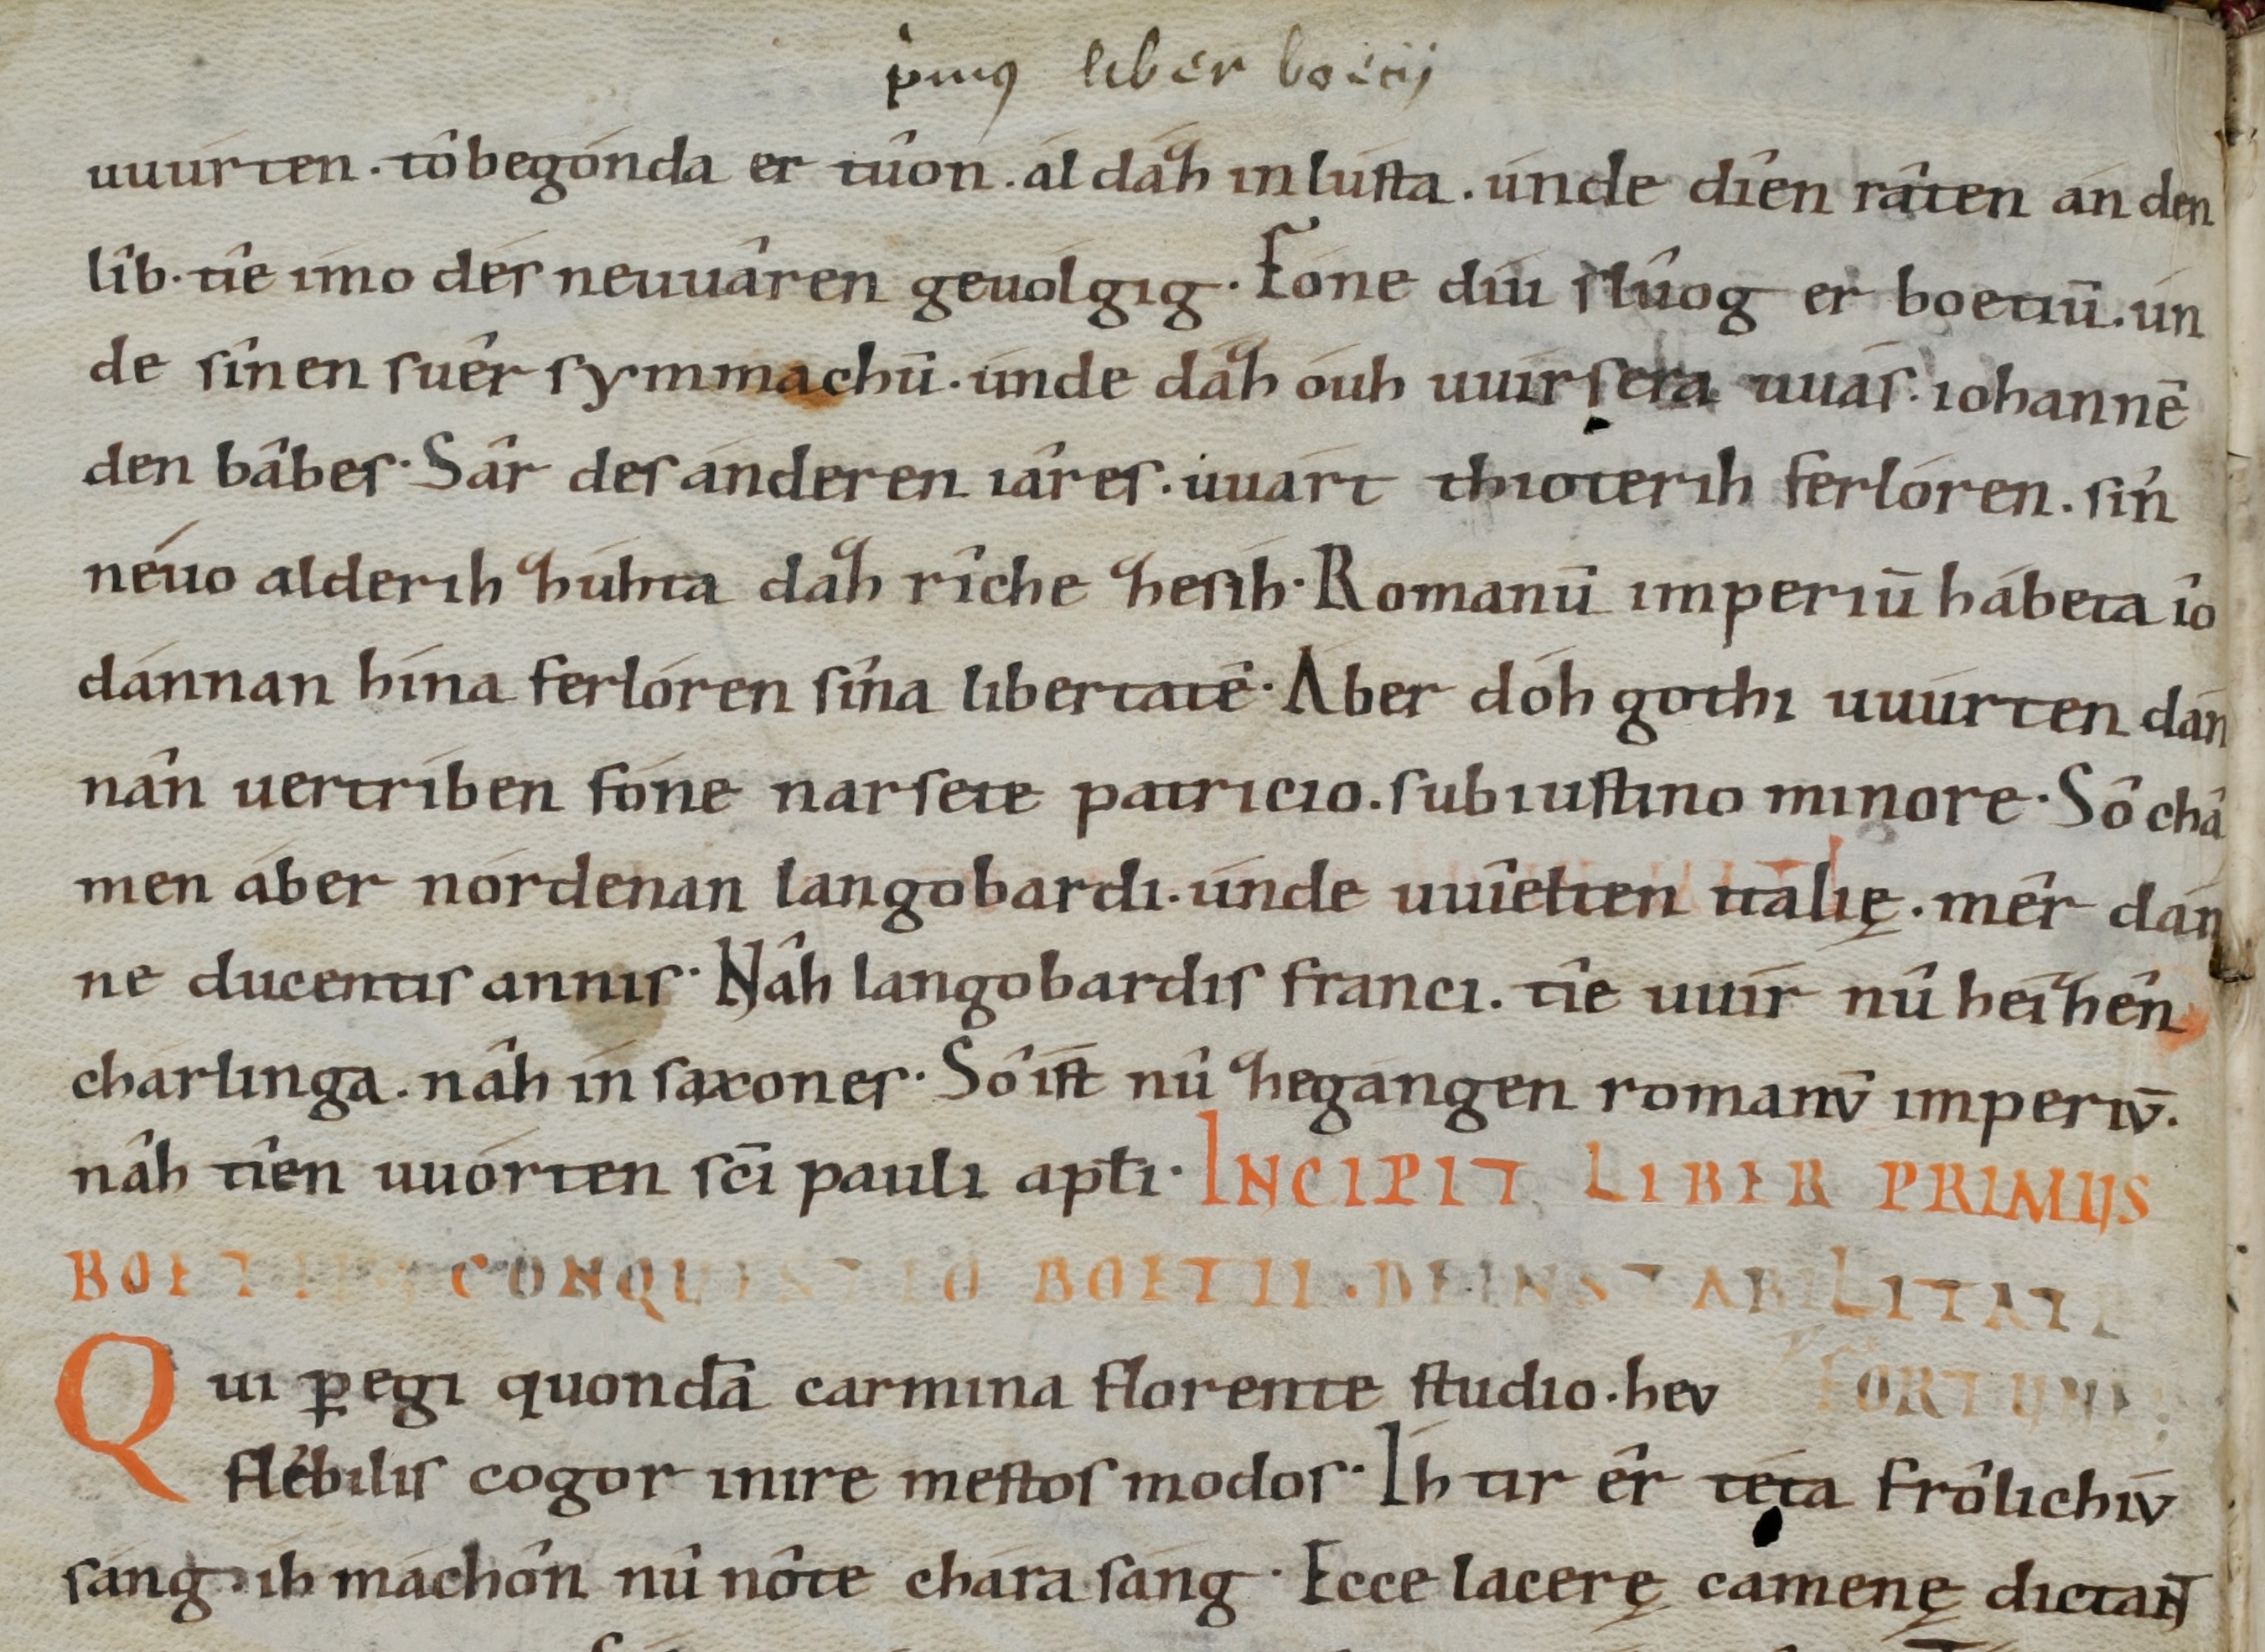 p̓muꝰ liber boecij
uuúrten. tô begónda er tûon. ál dáz in lústa. únde dîen râten án den
lîb. tîe imo dés neuuâren geuólgig. Fóne díu slûog er boetiū. ún
de sînen suêr symmachū. únde dáz óuh uuírsera uuás. iohannē
den bâbes. Sâr des ánderen iâres. uuárt thioterih ferlóren. sín
néuo alderih zúhta daz rîche ze sih. Romanū imperiū hábeta îo
dánnan hína ferlóren sína libertatē. Áber dóh gothi uuúrten dán
nân uertríben fóne narsete patricio. sub iustino minore. Sô châ
men áber nórdenan langobardi. únde uuîelten italię. mêr dán
ne ducentis annis. Nâh langobardis franci. tîe uuír nû héizên
chárlinga. nâh ín saxones. Sô íst nû zegángen romanū imperiū.
nâh tîen uuórten sc̄i pauli apłi. INCIPIT LIBER PRIMUS
BOETII CONQUESTIO BOETII. DE INSTABILITATE
Qui ꝑegi quondā carmina florente studio. heu FORTUNE.
flébilis cogor inire mestos modos. Íh tir êr téta frôlichiū
sáng. íh máchôn nû nôte chára sáng. Ecce lacerę camenę dictant